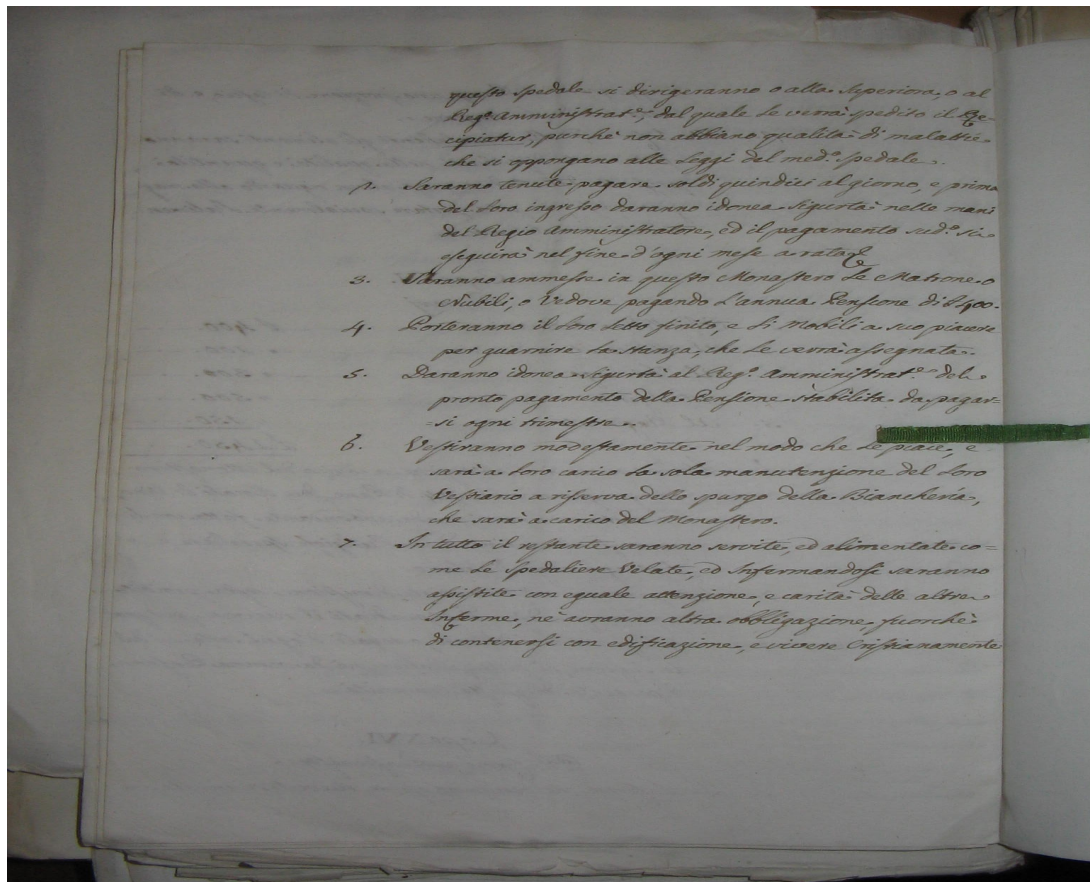 questo Spedale si dirigeranno o alla Superiora, o al
Reg.º Amministrat.e, dal quale le verrà spedito il Re-
cipiatur, purchè non abbiano qualità di malattie
che si oppongano alle Leggi del med.º Spedale.
2. Saranno tenute pagare soldi quindici al giorno, e prima
del Loro ingresso daranno idonea Sigurtà nelle mani
del Regio Amministratore, ed il pagamento sud.º si
eseguirà nel fine d'ogni mese a rata
3. Saranno ammesse in questo Monastero Le Matrone o
Nubili, o Vedove pagando L'annua Pensione di 400.
4. Porteranno il Loro Letto finito, e Li Mobili a suo piacere
per guarnire La Stanza, che Le verrà assegnata.
5. Daranno idonea Sigurtà al Reg.º Amministrat.e del
pronto pagamento della Pensione stabilita da pagar=
=si ogni trimestre.
6. Vestiranno modestamente nel modo che Le piace, e
sarà a Loro carico La sola manutenzione del Loro
Vestiario a riserva dello spurgo della Biancheria,
che sarà a carico del Monastero.
7. In tutto il restante saranno servite, ed alimentate co=
me Le Spedaliere Velate, ed Infermandosi saranno
assistite con eguale attenzione, e carità delle altre
Inferme, nè avranno altra obbligazione, fuorchè
di contenersi con edificazione, e vivere Cristianamente